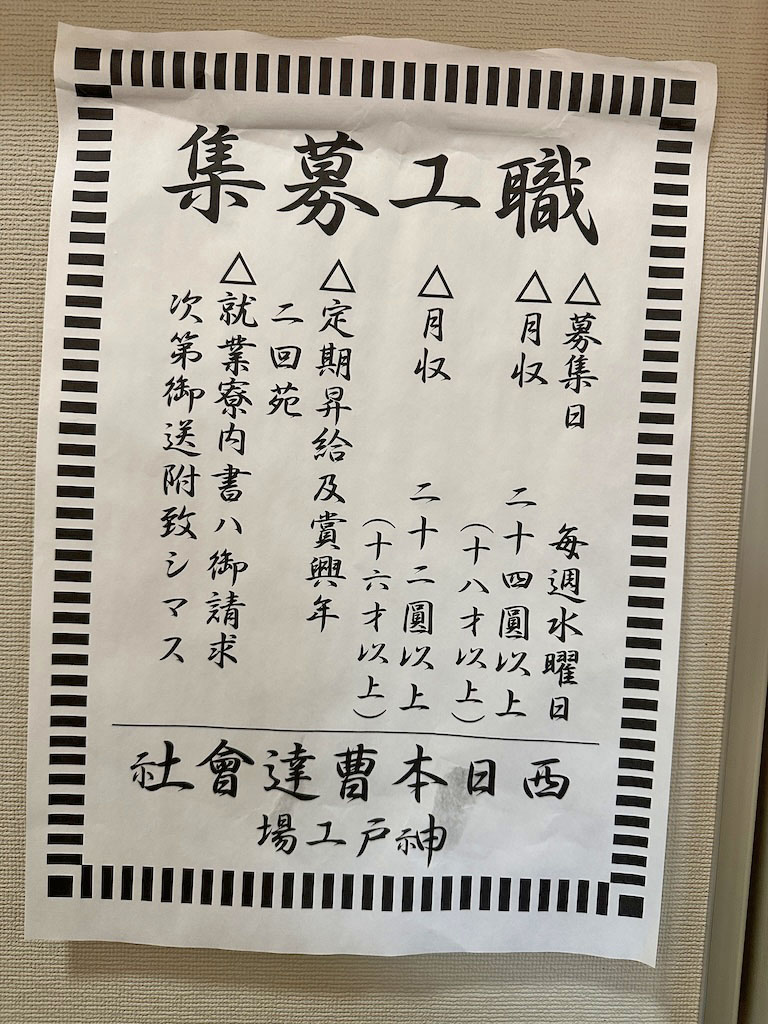 職工募集
△募集日 毎週水曜日
△月収 二十四圓以上
(十八才以上)
△月収 二十二圓以上
(十六才以上)
△定期昇給及賞興年
二回苑
△就業寮内書ハ御請求
次第御送附致シマス
西日本曹達會社
神戸工場